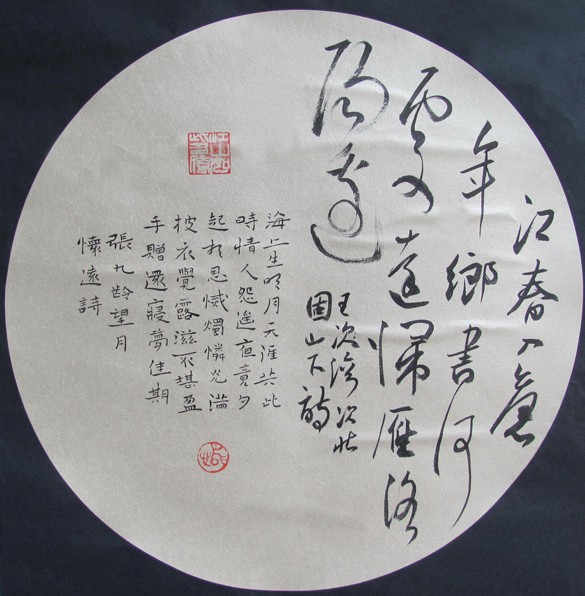 江春入舊
年鄉書何
處達歸雁洛
陽邊
王次灣次北
固山下詩
海上生明月天涯共此
時情人怨遙夜竟夕
起相思滅燭憐光滿
披衣覺露滋不堪盈
手贈還寢夢佳期
張九齡望月
懷遠詩